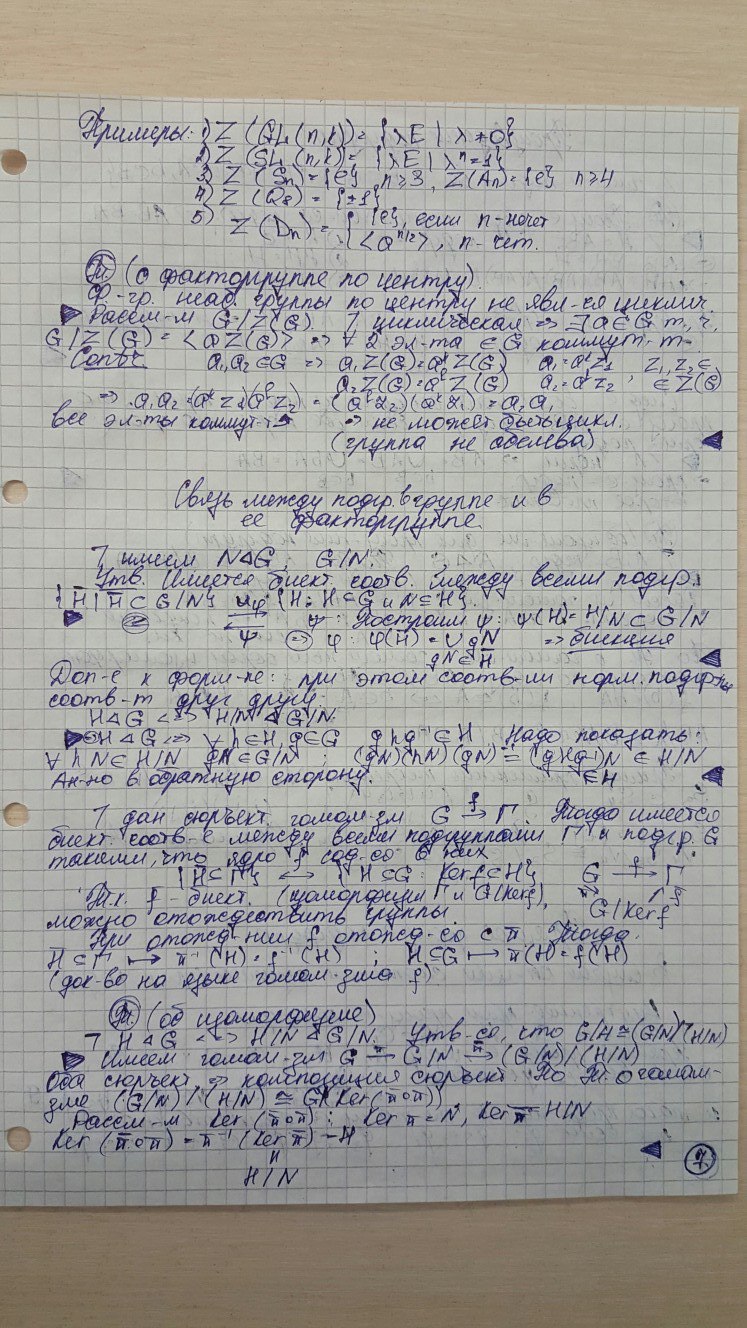 Примеры: 1) Z (GL(n,k)) = {λE | λ ≠ 0}
2) Z (SL(n,k)) = {λE | λⁿ = 1}
3) Z (Sn) = {e} n ≥ 3, Z(An) = {e} n ≥ 4
4) Z (Q₈) = {±1}
5) Z (Dn) = { {e}, если n - нечет
⟨a^{n/2}⟩, n - чет.
Т. (о факторгруппе по центру).
Ф-гр. неаб. группы по центру не явл-ся циклич.
Рассм-м G/Z(G). ] циклическая => ∃ a ∈ G т.ч.
G/Z(G) = ⟨aZ(G)⟩ => ∀ 2 эл-та ∈ G коммут-т
a₁, a₂ ∈ G => a₁Z(G) = aᵏZ(G) a₁ = aᵏz₁, z₁, z₂ ∈
a₂Z(G) = aˡZ(G) a₂ = aˡz₂ ∈ Z(G)
=> a₁a₂ = (aᵏz₁)(aˡz₂) = (aˡz₂)(aᵏz₁) = a₂a₁
все эл-ты коммут-т => не может быть цикл.
(группа не абелева)
Связь между подгр. в группе и в
ее факторгруппе
] имеем N ⊲ G, G/N.
Утв. Имеется биект. соотв. между всеми подгр.
{H̄ | H̄ ⊂ G/N} φ {H: H ⊂ G и N ⊆ H}.
ψ Построим ψ: ψ(H) = H/N ⊂ G/N
φ: φ(H̄) = ∪ gN => биекция
gN ∈ H̄
Доп-е к форм-ке: при этом соотв-ии норм. подгр-пы
соотв-т друг другу.
H ⊲ G <=> H/N ⊲ G/N.
H ⊲ G <=> ∀ h ∈ H, g ∈ G ghg⁻¹ ∈ H Надо показать:
∀ hN ∈ H/N gN ∈ G/N : (gN)(hN)(gN)⁻¹ = (ghg⁻¹)N ∈ H/N
Ан-но в обратную сторону. ∈ H
] дан сюръект. гомом-зм G →f Γ. Тогда имеется
биект. соотв-е между всеми подгруппами Γ и подгр. G
такими, что ядро f сод-ся в них
{H̄ ⊂ Γ} <-> {H ⊂ G: Ker f ⊂ H} G →f Γ
Т.к. f̄ - биект. (изоморфизм Γ и G/Ker f), π f̄
можно отождествить группы. G/Ker f
При отожд-нии f отожд-ся с π. Тогда
H̄ ⊂ Γ ↦ π⁻¹(H̄) = f⁻¹(H̄) ; H ⊂ G ↦ π(H) = f(H)
(док-во на языке гомом-зма f)
Т. (об изоморфизме)
] H ⊲ G <-> H/N ⊲ G/N. Утв-ся, что G/H ≅ (G/N)/(H/N)
Имеем гомом-зм G →π G/N →π̄ (G/N)/(H/N)
Оба сюръект. => композиция сюръект По Т. о гомом-
зме (G/N)/(H/N) ≅ G/Ker(π̄∘π)
Рассм-м Ker(π̄∘π): Ker π = N, Ker π̄ = H/N
Ker(π̄∘π) = π⁻¹(Ker π̄) = H
=
H/N
7